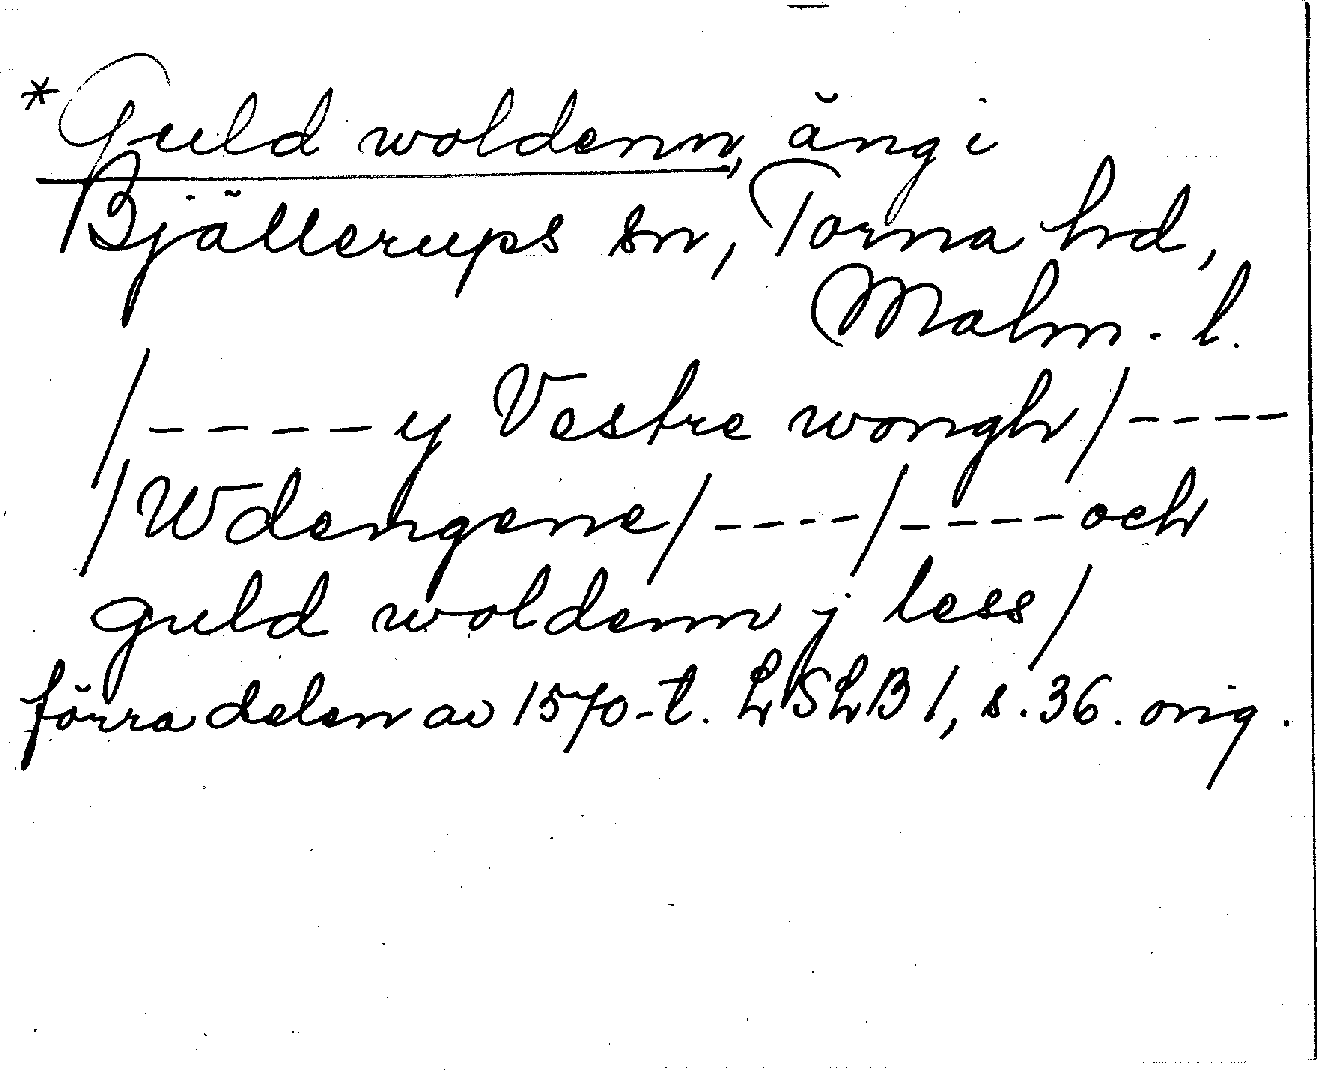 *Guld woldenn, äng i
Bjällerups sn, Torna hd,
Malm. l.
/ - - - - - y Vestre wongh / - - - -
/ Wdengene / - - - - / - - - - - och
guld woldenn j less /
förra delen av 1570-t. LSLB 1, s. 36. orig.